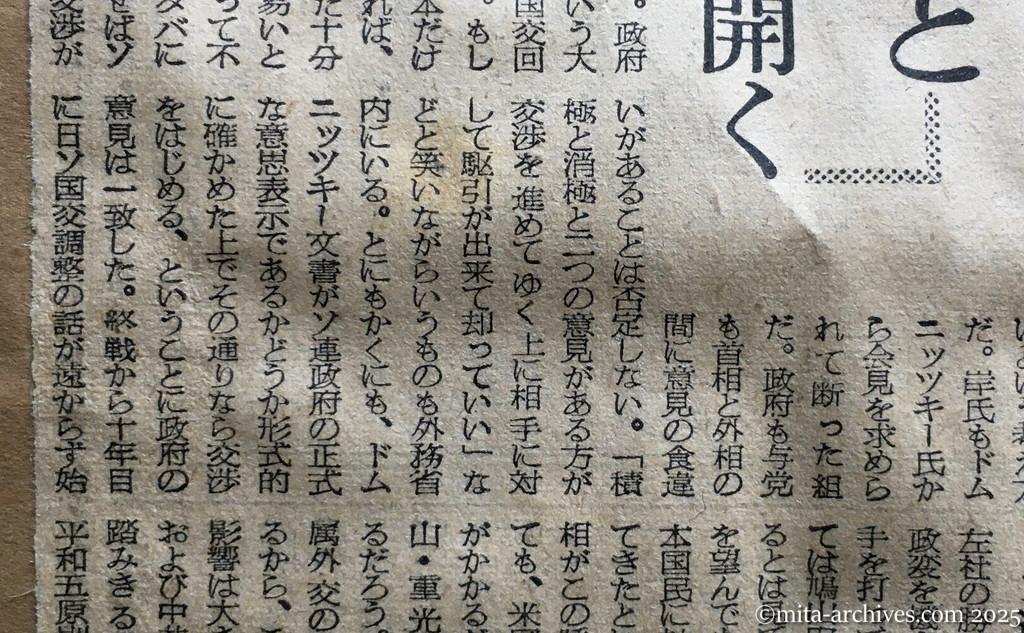 と」
開く
。政府
いう大
国交回
。もし
本だけ
れば、
た十分
易いと
って不
タバに
せばソ
交渉が
だ。岸氏もドム
ニッツキー氏か
ら会見を求めら
れて断った組
だ。政府も与党
も首相と外相の
間に意見の食違
いがあることは否定しない。「積
極と消極と二つの意見がある方が
交渉を進めてゆく上に相手に対
して駆引が出来て却っていい」な
どと笑いながらいうものも外務省
内にいる。とにもかくにも、ドム
ニッツキー文書がソ連政府の正式
な意思表示であるかどうか形式的
に確かめた上でその通りなら交渉
をはじめる、ということに政府の
意見は一致した。終戦から十年目
に日ソ国交調整の話が遠からず始
左社の
政変を
手を打
ては鳩
るとは
を望んで
本国民に
てきたと
相がこの
ても、米
がかかる
山・重光
るだろう。
属外交の
るから、
影響は大
および中
踏みきる
平和五原
©mita-archives.com 2025